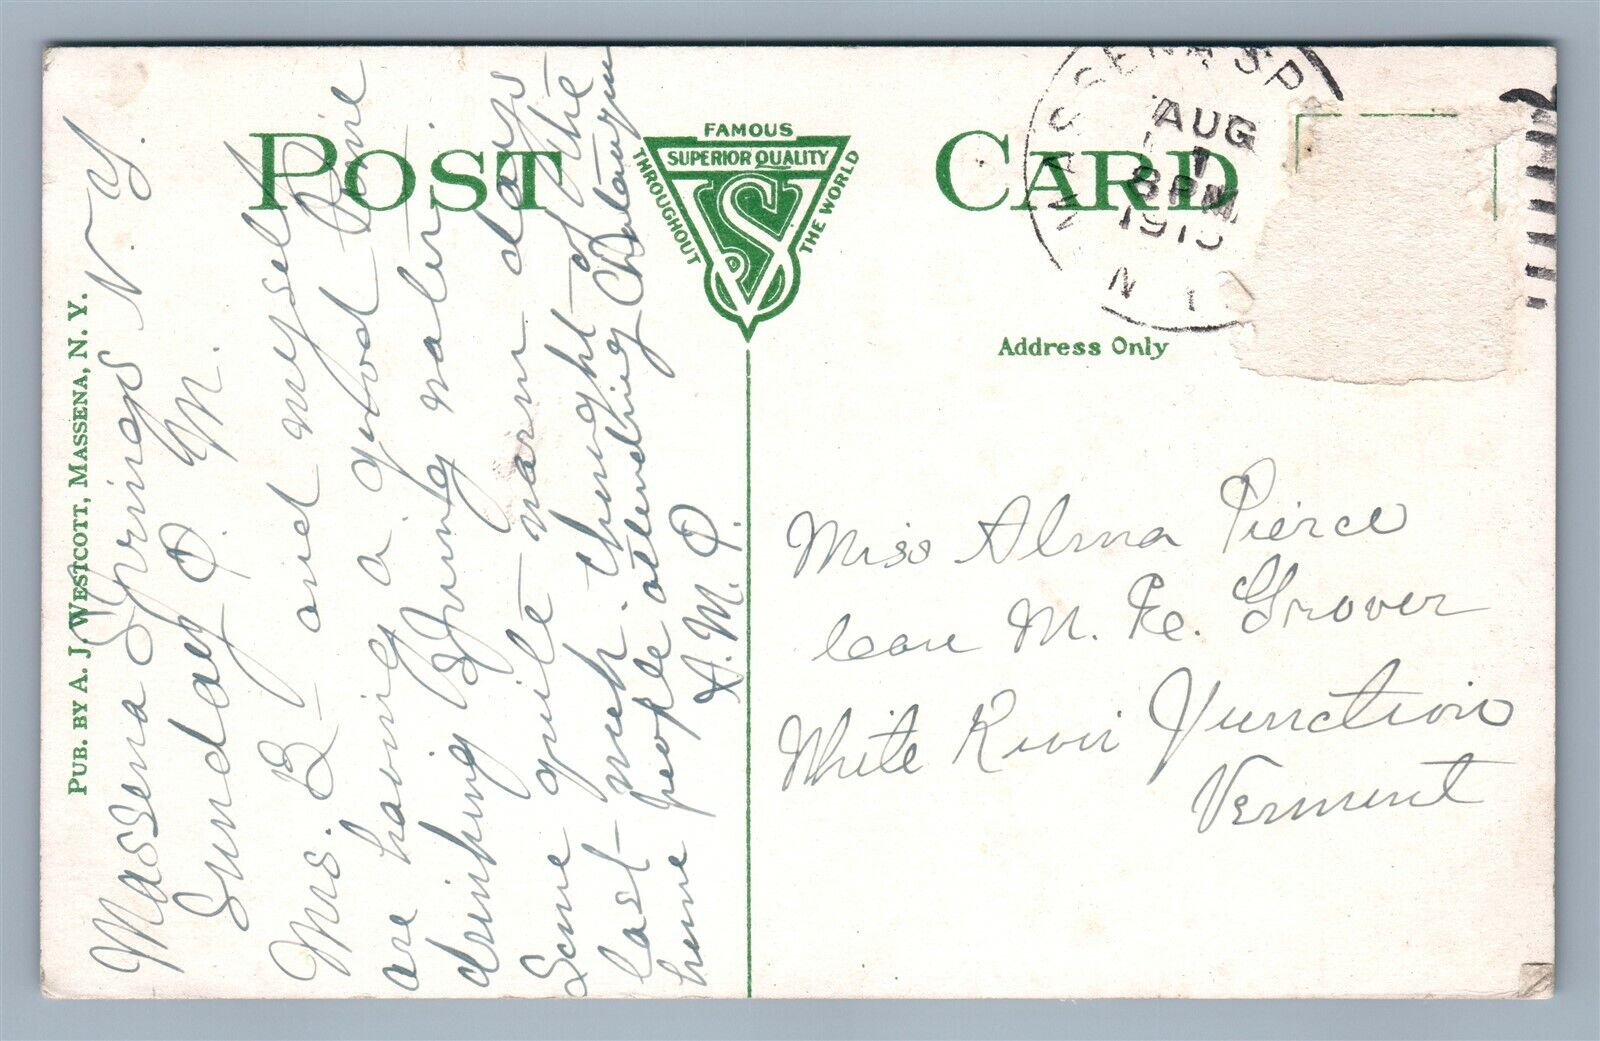 POST CARD
FAMOUS
SUPERIOR QUALITY
THROUGHOUT THE WORLD
S
Address Only
PUB. BY A. J. WESTCOTT, MASSENA, N. Y.
MASSENA SP
AUG
1
8 PM
191
N
Massena Springs N. Y.
Sunday P. M.
Mrs. B– and myself
are having a good time
drinking Spring water
Some quite warm days
last week. thought of the
home people attending Chatauqua
A. M. P.
Miss Alma Pierce
Care M. E. Grover
White River Junction
Vermont